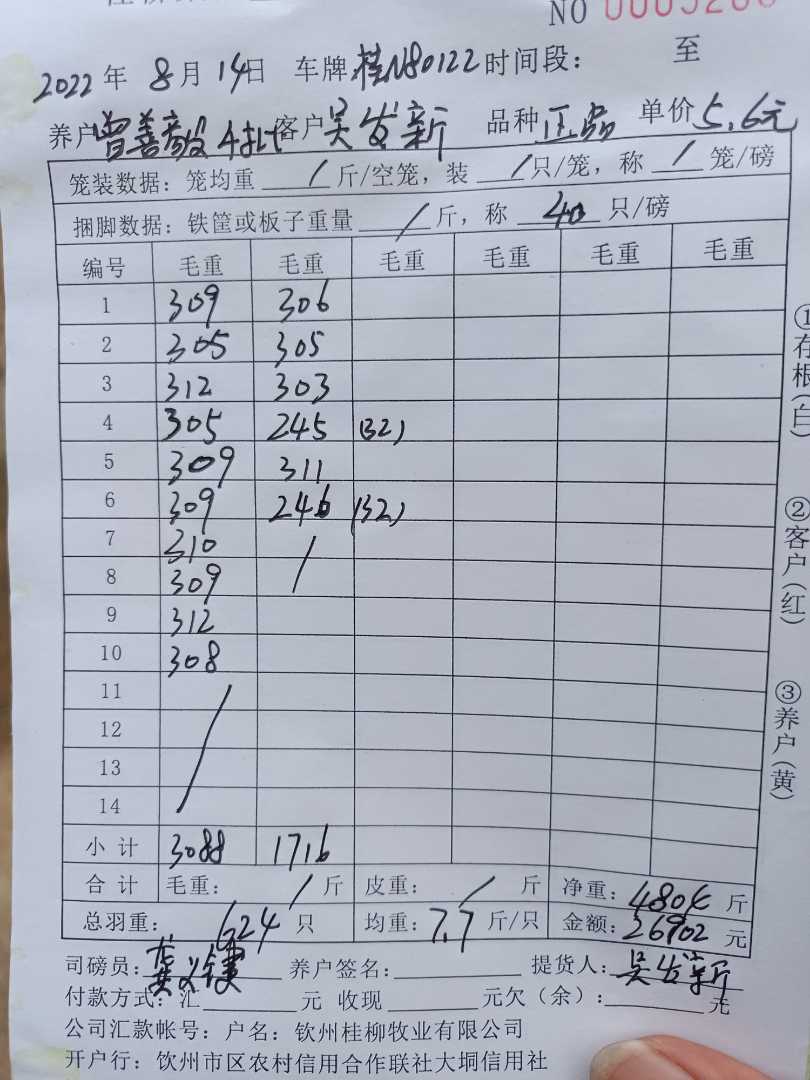 NO 0005286
2022年 8月 14日 车牌 桂N80122 时间段: 至
养户 曾善毅 4批 客户 吴发新 品种 正品 单价 5.6元
笼装数据:笼均重 / 斤/空笼,装 / 只/笼,称 / 笼/磅
捆脚数据:铁筐或板子重量 / 斤,称 40 只/磅
编号 毛重 毛重 毛重 毛重 毛重 毛重
1 309 306
2 305 305
3 312 303
4 305 245 (32)
5 309 311
6 309 246 (32)
7 310 /
8 309
9 312
10 308
11 /
12
13
14
小计 3088 1716
合计 毛重: / 斤 皮重: / 斤 净重: 4804 斤
总羽重: 624 只 均重: 7.7 斤/只 金额: 26902 元
司磅员: 养户签名: 提货人: 吴发新
付款方式:汇 元 收现 元欠(余): 元
公司汇款帐号:户名:钦州桂柳牧业有限公司
开户行:饮州市区农村信用合作联社大垌信用社
①存根(白)
②客户(红)
③养户(黄)